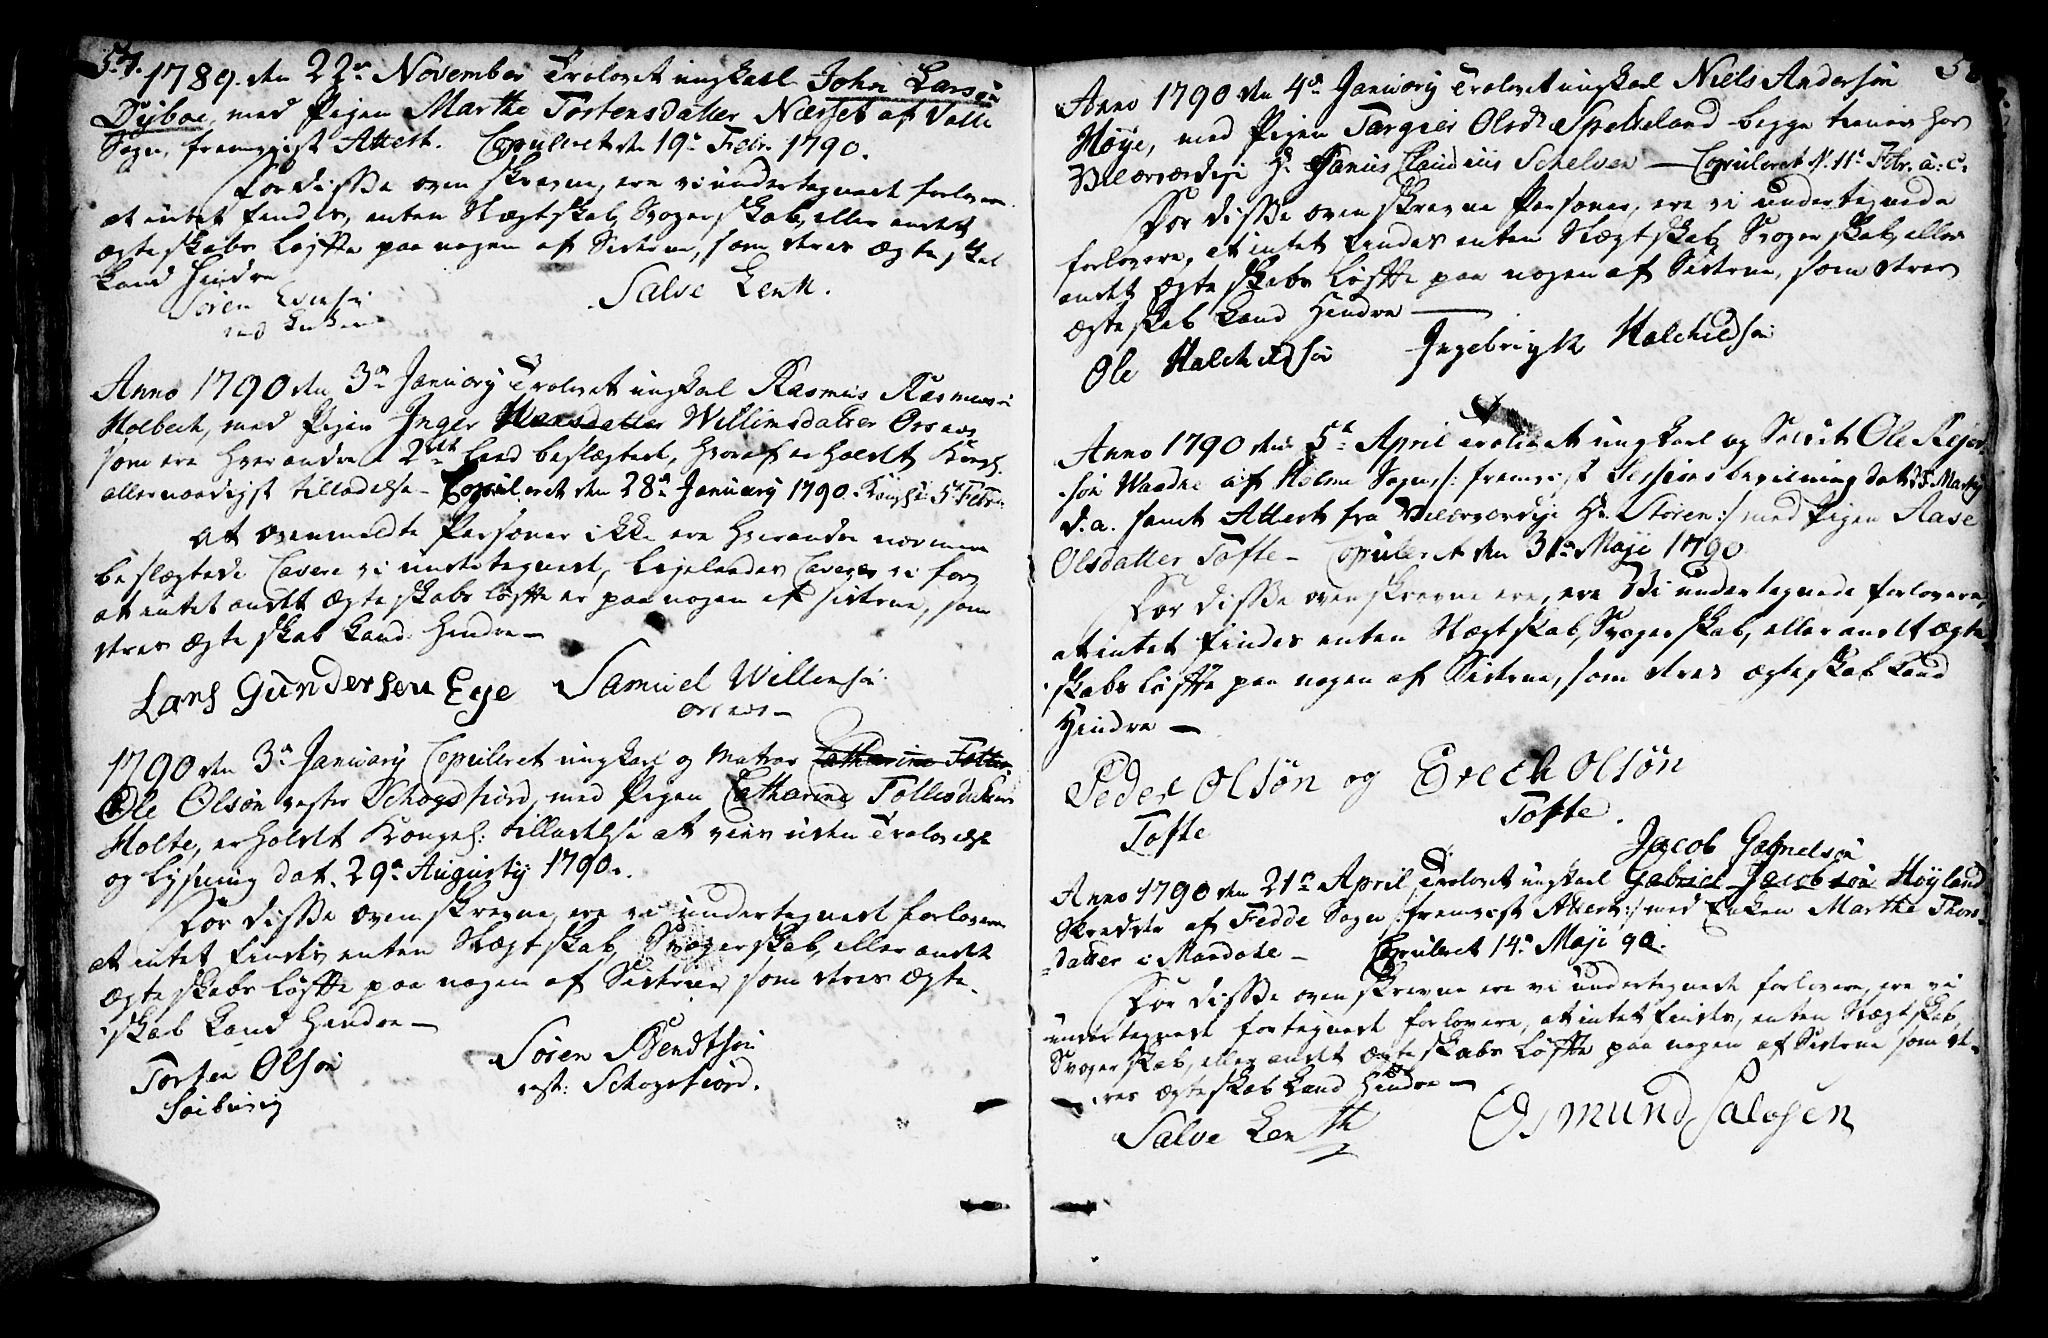 57.
1789. den 22de November Trolovet ungkarl John Larsøn
Dyboe, med Pigen Marthe Tostensdatter Næsset af Valle
Sogn, fremvist Attest. Copuleret den 19de Febr. 1790.
For disse ovenskrevne, ere vi undertegnede forlovere
at intet findes, enten Slægtskab, Svogerskab, eller andet
ægteskabs løfte paa nogen af Siderne, som deres ægteskab
kand hindre
Sören
Salve Lenth.
Anno 1790 den 3de January Trolovet ungkarl Rasmus Rasmusøn
Holbech, med Pigen Inger Willumsdatter
som ere hverandre i 2det Leed beslægtede, hvoraf er holdt Kongl.
allernaadigst tilladelse Copuleret den 28de January 1790.
At ovenmeldte Personer ikke ere hverandre nærmere
beslægtede Cavere vi undertegnede, ligeleedes Caverer vi for
at intet andet ægteskabs løfte er paa nogen af Siderne, som
deres ægteskab kand hindre
Lars Gundersen Eye
Samuel Willumsøn
1790 den 3de January Copuleret ungkarl og Matros Catharine
Ole Olsøn vester Schogsfiord, med Pigen Catharine Tollesdatter
Holte, erholdet Kongel: tilladelse at vies uden Trolovelse
og lysning dat. 29de Augusty 1790.
For disse ovenskrevne, ere vi undertegnede forlovere
at intet findes enten Slægtskab, Svogerskab, eller andet
ægteskabs løfte paa nogen af Siderne som deres ægte-
skab kand hindre
Torsten Olsøn
Søren Bendtsøn
vest: Schogsfiord.
Anno 1790 den 4de January Trolovet ungkarl Niels Andersøn
Høye, med Pigen Targier Olsdr Spetteland begge tiener hos
Velærværdige Hr. Janus Claudius Schelven Copuleret d. 11te Febr. a: c.
For disse ovenskrevne Personer, ere vi undertegnede
forlovere, at intet findes enten Slægtskab, Svogerskab, eller
andet ægteskabs løfte paa nogen af Siderne, som deres
ægteskab kand hindre
Ole Halchildsøn
Ingebrigt Halchildsøn
Anno 1790 den 5te April trolovet ungkarl og Soldat Ole
søn af Holme Sogn /: fremvist Sessions bevilning dat. Marty
d. a. samt Attest fra Velærværdige Hr. Støren :/ med Pigen Aase
Olsdatter Tofte Copuleret den 31te Maji 1790
For disse ovenskrevne ere, ere Vi undertegnede forlovere,
at intet findes enten Slægtskab, Svogerskab, eller andet ægte-
skabs løfte paa nogen af Siderne, som deres ægteskab kand
hindre
Peder Olsøn og Erich Olsøn
Tofte Tofte.
Jacob Gabrielsøn
Anno 1790 den 21de April Trolovet ungkarl Gabriel Jacobsøn Høyland
af Fedde Sogn /: fremvist Attest :/ med Enken Marthe Thors-
datter i Mandahl Copuleret 14de Maji 90.
For disse ovenskrevne ere vi undertegnede forlovere, ere vi
undertegnede forlovere, at intet findes, enten Slægtskab,
Svogerskab, eller andet ægteskabs løfte paa nogen af Siderne som de-
res ægteskab kand hindre
Salve Lenth
Osmund Salvesen